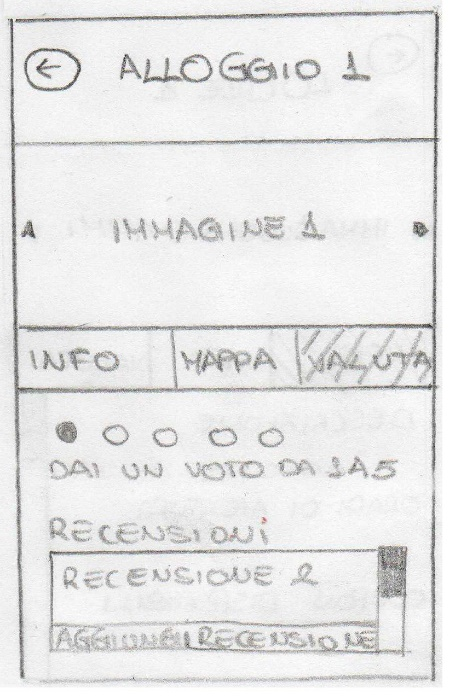 ALLOGGIO 1
IMMAGINE 1
INFO MAPPA VALUTA
DAI UN VOTO DA 1 A 5
RECENSIONI
RECENSIONE 2
AGGIUNGI RECENSIONE